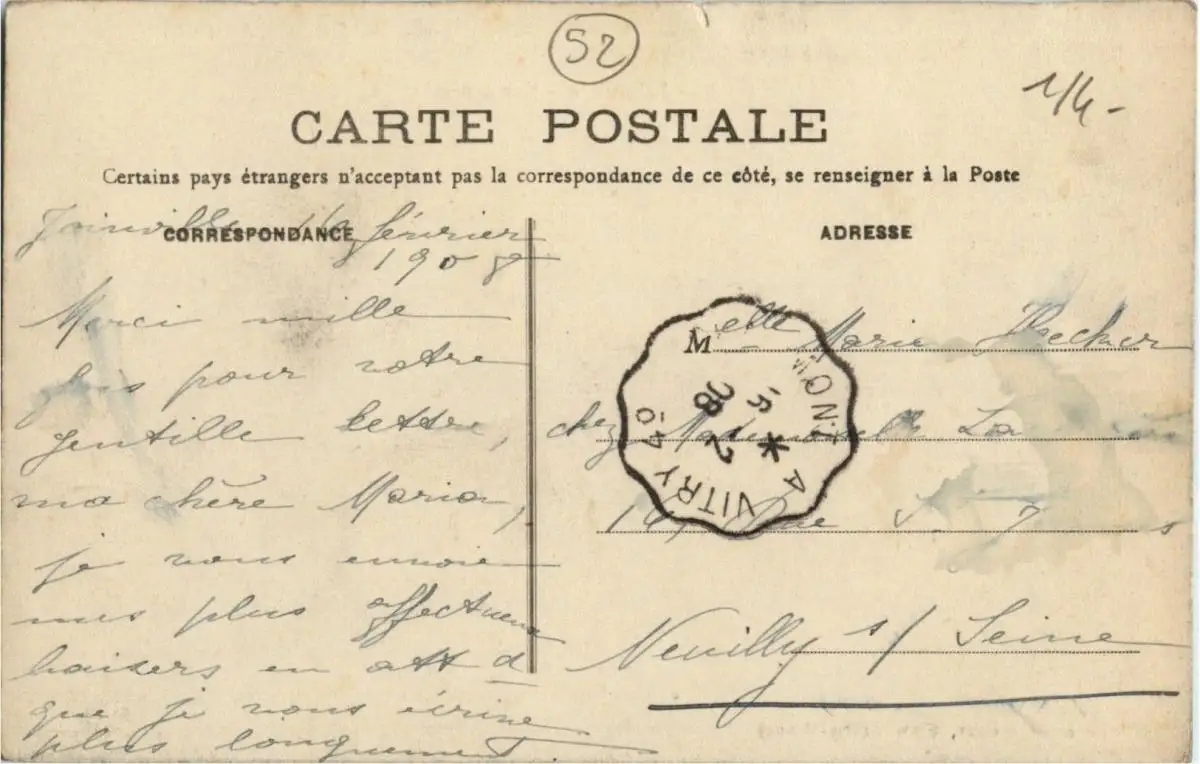 52
1/4-
CARTE POSTALE
Certains pays étrangers n'acceptant pas la correspondance de ce côté, se renseigner à la Poste
CORRESPONDANCE
Joinville février
1908
Merci mille
fois pour votre
gentille lettre,
ma chère Maria,
je vous envoie
mes plus affectueux
baisers en attd
que je vous écrive
plus longuement
ADRESSE
Melle Marie Becker
chez Mademoiselle La
Rue
Neuilly s/ Seine
A VITRY
15
2
08